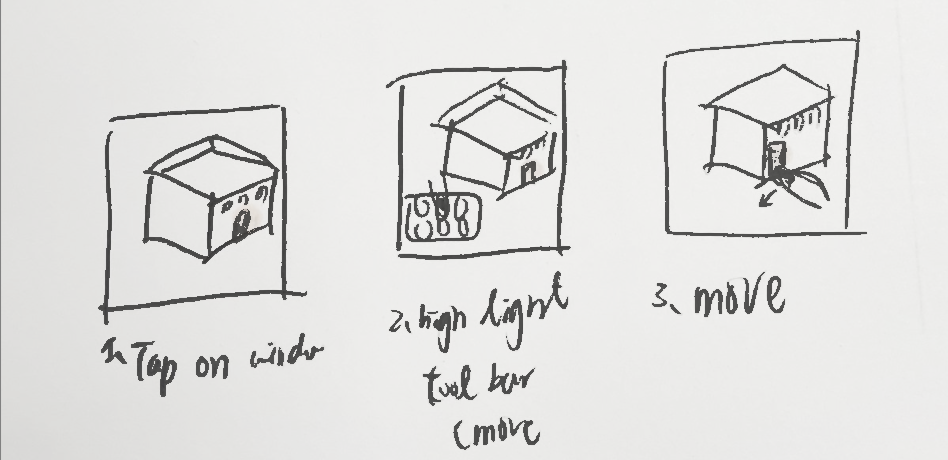 1. Tap on window
2. high light
tool bar
(move
3. move